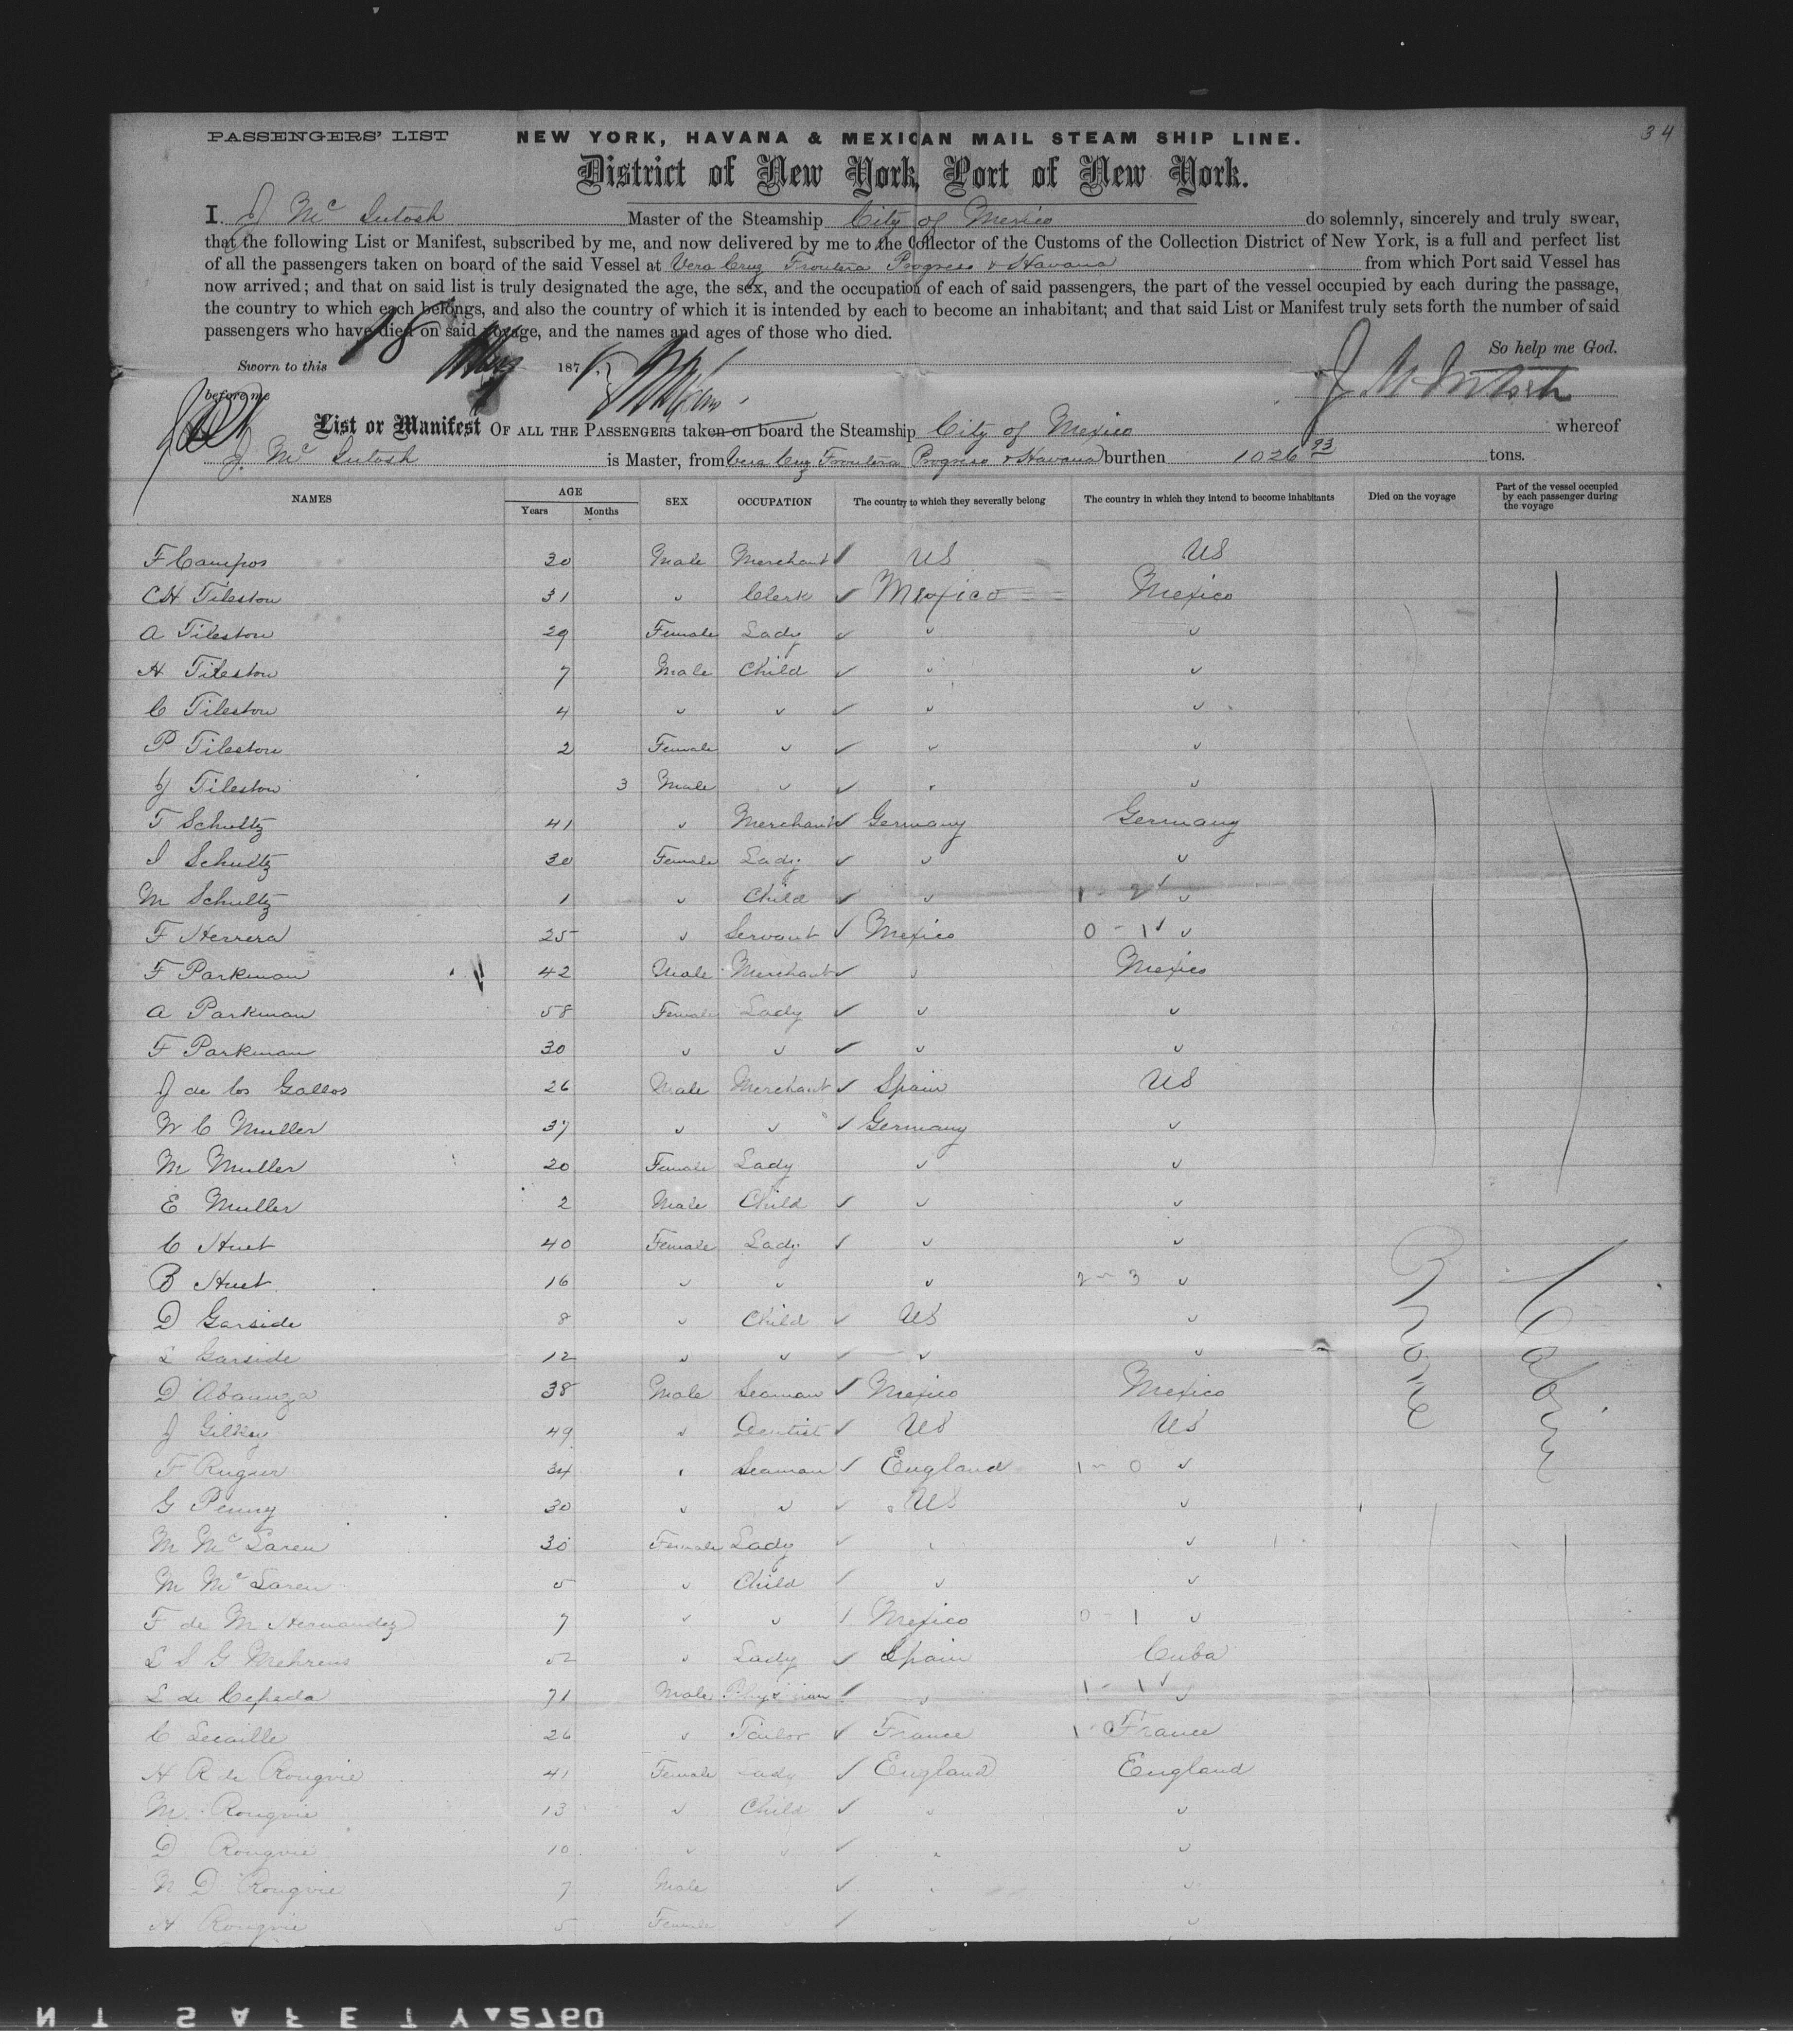 PASSENGERS' LIST NEW YORK, HAVANA & MEXICAN MAIL STEAM SHIP LINE. 34
District of New York, Port of New York.
I. J McIntosh Master of the Steamship City of Mexico do solemnly, sincerely and truly swear,
that the following List or Manifest, subscribed by me, and now delivered by me to the Collector of the Customs of the Collection District of New York, is a full and perfect list
of all the passengers taken on board of the said Vessel at Vera Cruz Frontera Progreso & Havana from which Port said Vessel has
now arrived; and that on said list is truly designated the age, the sex, and the occupation of each of said passengers, the part of the vessel occupied by each during the passage,
the country to which each belongs, and also the country of which it is intended by each to become an inhabitant; and that said List or Manifest truly sets forth the number of said
passengers who have died on said voyage, and the names and ages of those who died.
So help me God.
Sworn to this 18 May 187
before me J McIntosh
List or Manifest OF ALL THE PASSENGERS taken on board the Steamship City of Mexico whereof
J. McIntosh is Master, from Vera Cruz Frontera Progreso & Havana burthen 1026 93 tons.
NAMES AGE Years Months SEX OCCUPATION The country to which they severally belong The country in which they intend to become inhabitants Died on the voyage Part of the vessel occupied by each passenger during the voyage
F Campos 30 Male Merchant US US
CH Tileston 31 " Clerk Mexico Mexico
A Tileston 29 Female Lady " "
H Tileston 7 Male Child " "
C Tileston 4 " " " "
P Tileston 2 Female " " "
J Tileston 3 Male " " "
T Schultz 41 " Merchant Germany Germany
I Schultz 30 Female Lady " "
M Schultz 1 " Child " 1 - 2 "
F Herrera 25 " Servant Mexico 0 - 1 "
F Parkman 42 Male Merchant " Mexico
A Parkman 58 Female Lady " "
F Parkman 30 " " " "
J de los Gallos 26 Male Merchant Spain US
W C Muller 37 " " Germany "
M Muller 20 Female Lady " "
E Muller 2 Male Child " "
C Huet 40 Female Lady " "
B Huet 16 " " " 2 - 3 "
D Garside 8 " Child US "
L Garside 12 " " " "
D Abaunza 38 Male Seaman Mexico Mexico None Cabin
J Gilkey 49 " Dentist US US
F 34 " Seaman England 1 - 0 "
G Penny 30 " " US "
M McLaren 30 Female Lady " "
M McLaren 5 " Child " "
F de M Hernandez 7 " " Mexico 0 - 1 "
L S G Mehrens 52 " Lady Spain Cuba
L de Cepeda 71 Male Physician " 1 - 1 "
C Lecaille 26 " Tailor France 1 France
H R de Rougvie 41 Female Lady England England
M Rougvie 13 " Child " "
D Rougvie 10 " " " "
N D Rougvie 7 Male " "
H Rougvie 5 Female " " "
NT SAFETY▲2760